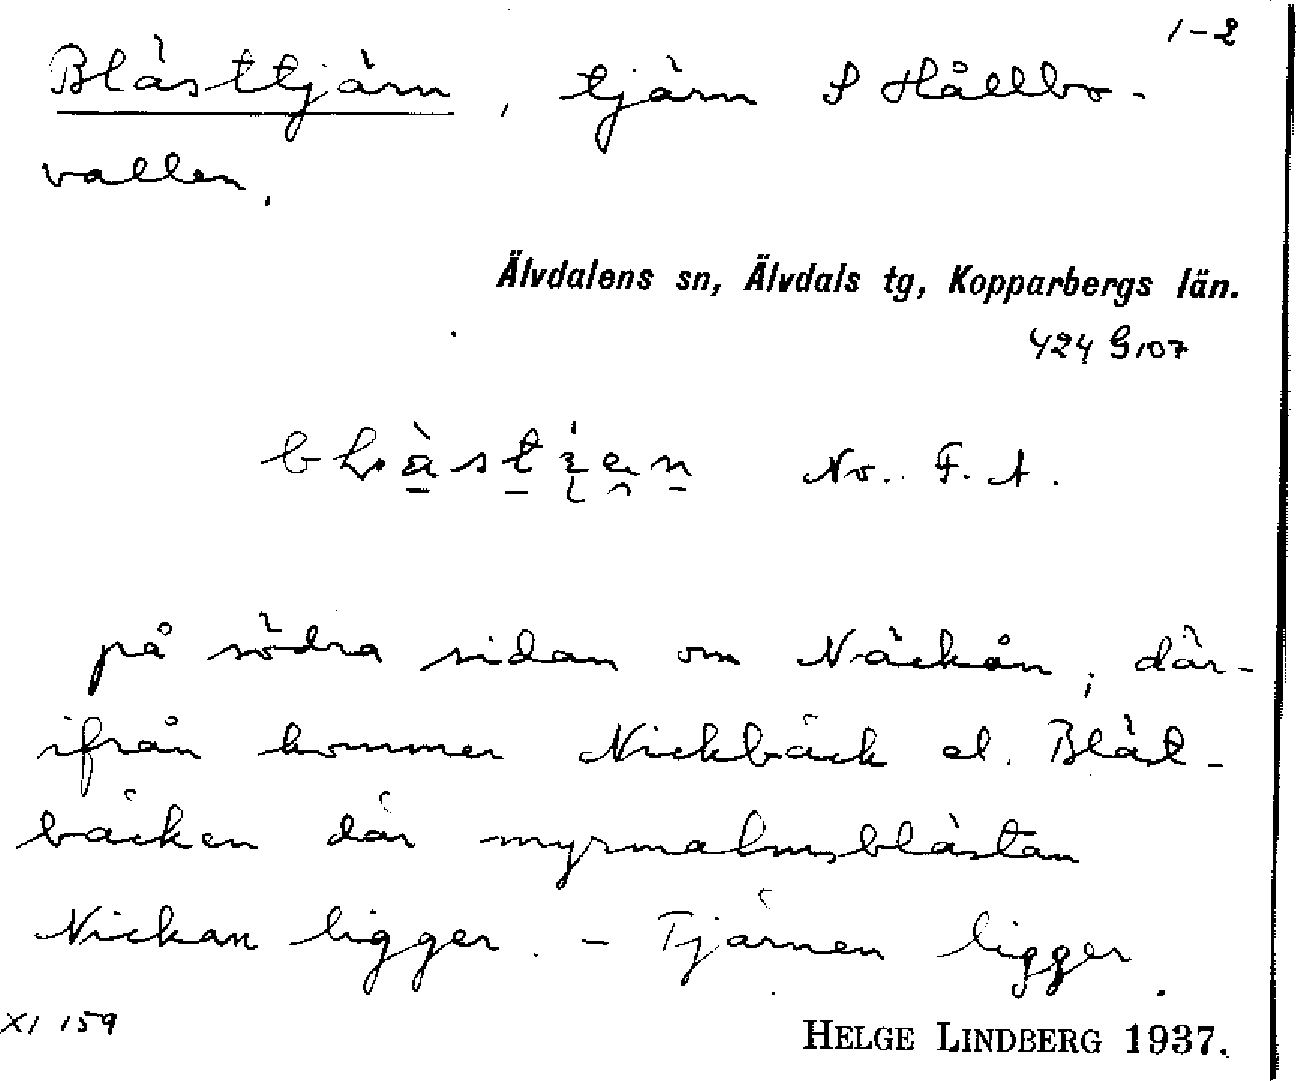 1-2
Blästtjärn, tjärn S Hållbo-
vallen.
Älvdalens sn, Älvdals tg, Kopparbergs län.
424 G107
No. F. A.
på södra sidan om Näckån, där-
ifrån kommer Nickbäck el. Bläst-
bäcken där myrmalmsblästan
Nickan ligger. - Tjärnen ligger
XI 159
HELGE LINDBERG 1937.